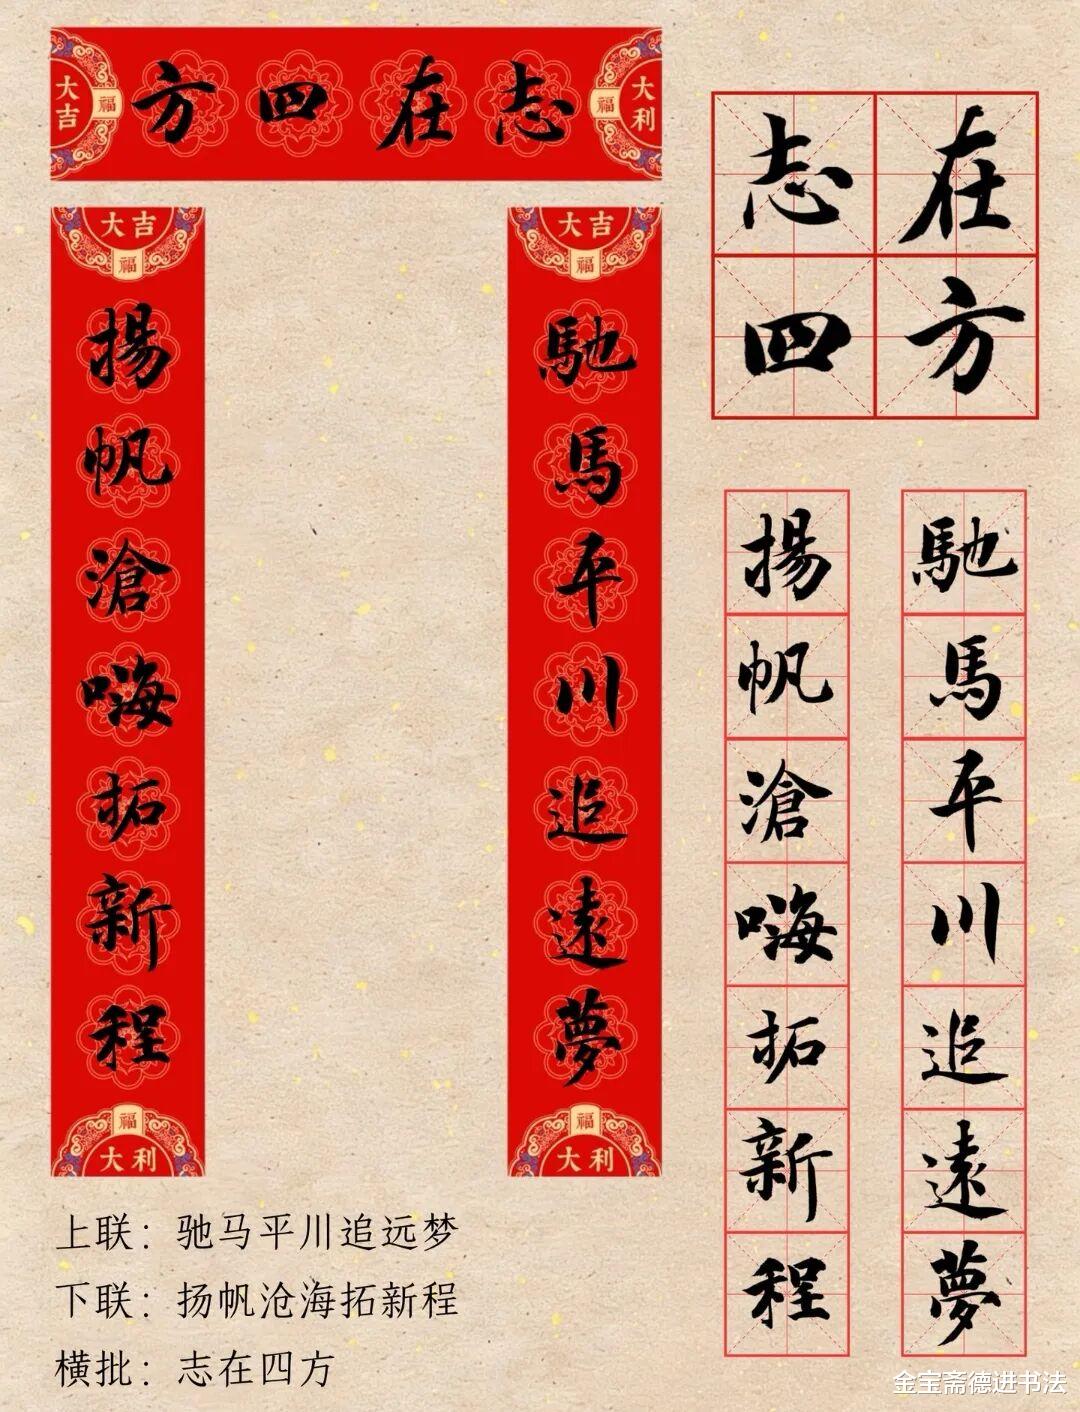 大利
福
志在四方
福
大吉
大吉
福
馳馬平川追遠夢
福
大利
大吉
福
揚帆滄嗨拓新程
福
大利
志在
四方
馳馬平川追遠夢
揚帆滄嗨拓新程
上联：驰马平川追远梦
下联：扬帆沧海拓新程
横批：志在四方
金宝斋德进书法